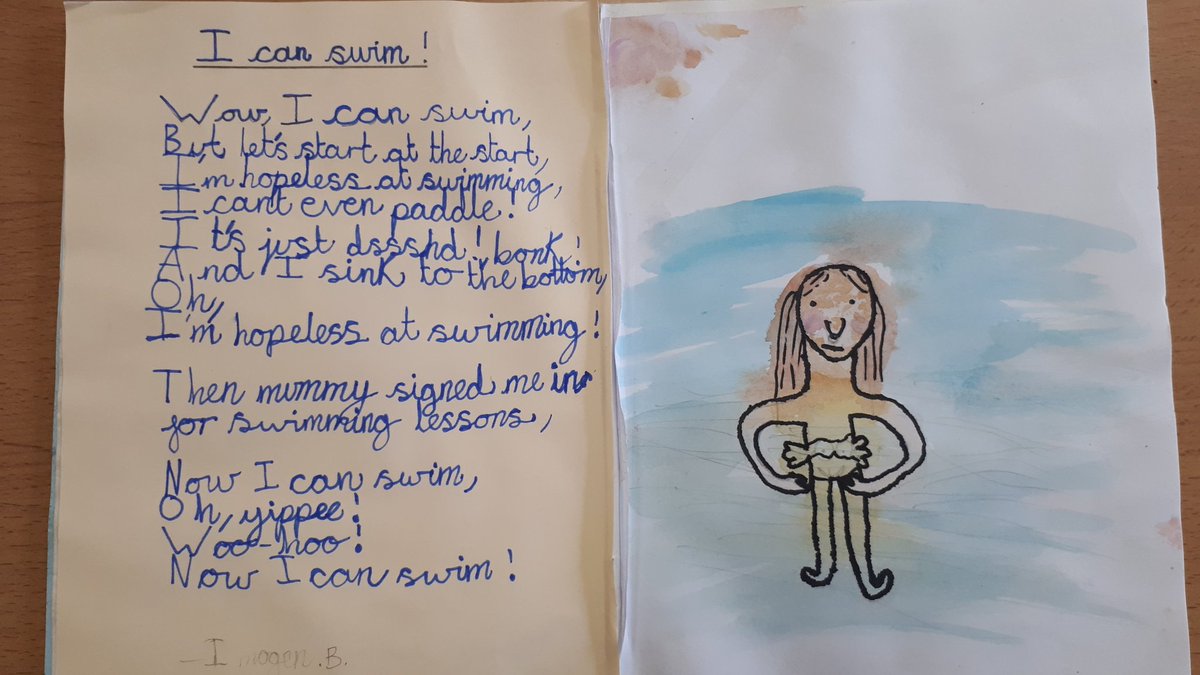 I can swim!
Wow, I can swim,
But let's start at the start,
I'm hopeless at swimming,
I can't even paddle!
It's just dssshd! bonk!
And I sink to the bottom,
Oh,
I'm hopeless at swimming!
Then mummy signed me in
for swimming lessons,
Now I can swim,
Oh, yippee!
Woo-hoo!
Now I can swim!
-Imogen.B.